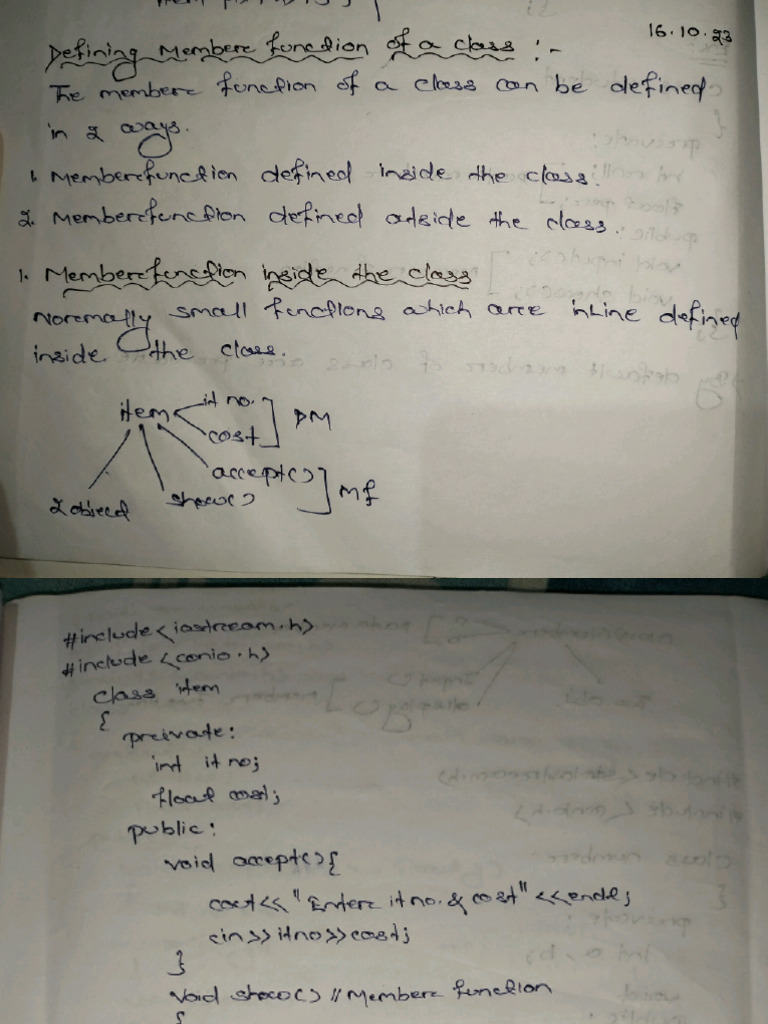 16.10.23
Defining Member function of a class :-
The member function of a class can be defined
in 2 ways.
1. Member function defined inside the class.
2. Member function defined outside the class.
1. Member function inside the class
Normally small functions which are inline defined
inside the class.
item
it no.
cost
DM
accept()
show()
MF
2 object
#include<iostream.h>
#include<conio.h>
class item
{
private:
int it no;
float cost;
public:
void accept(){
cout<<"Enter it no. & cost"<<endl;
cin>>itno>>cost;
}
void show() // Member function
{